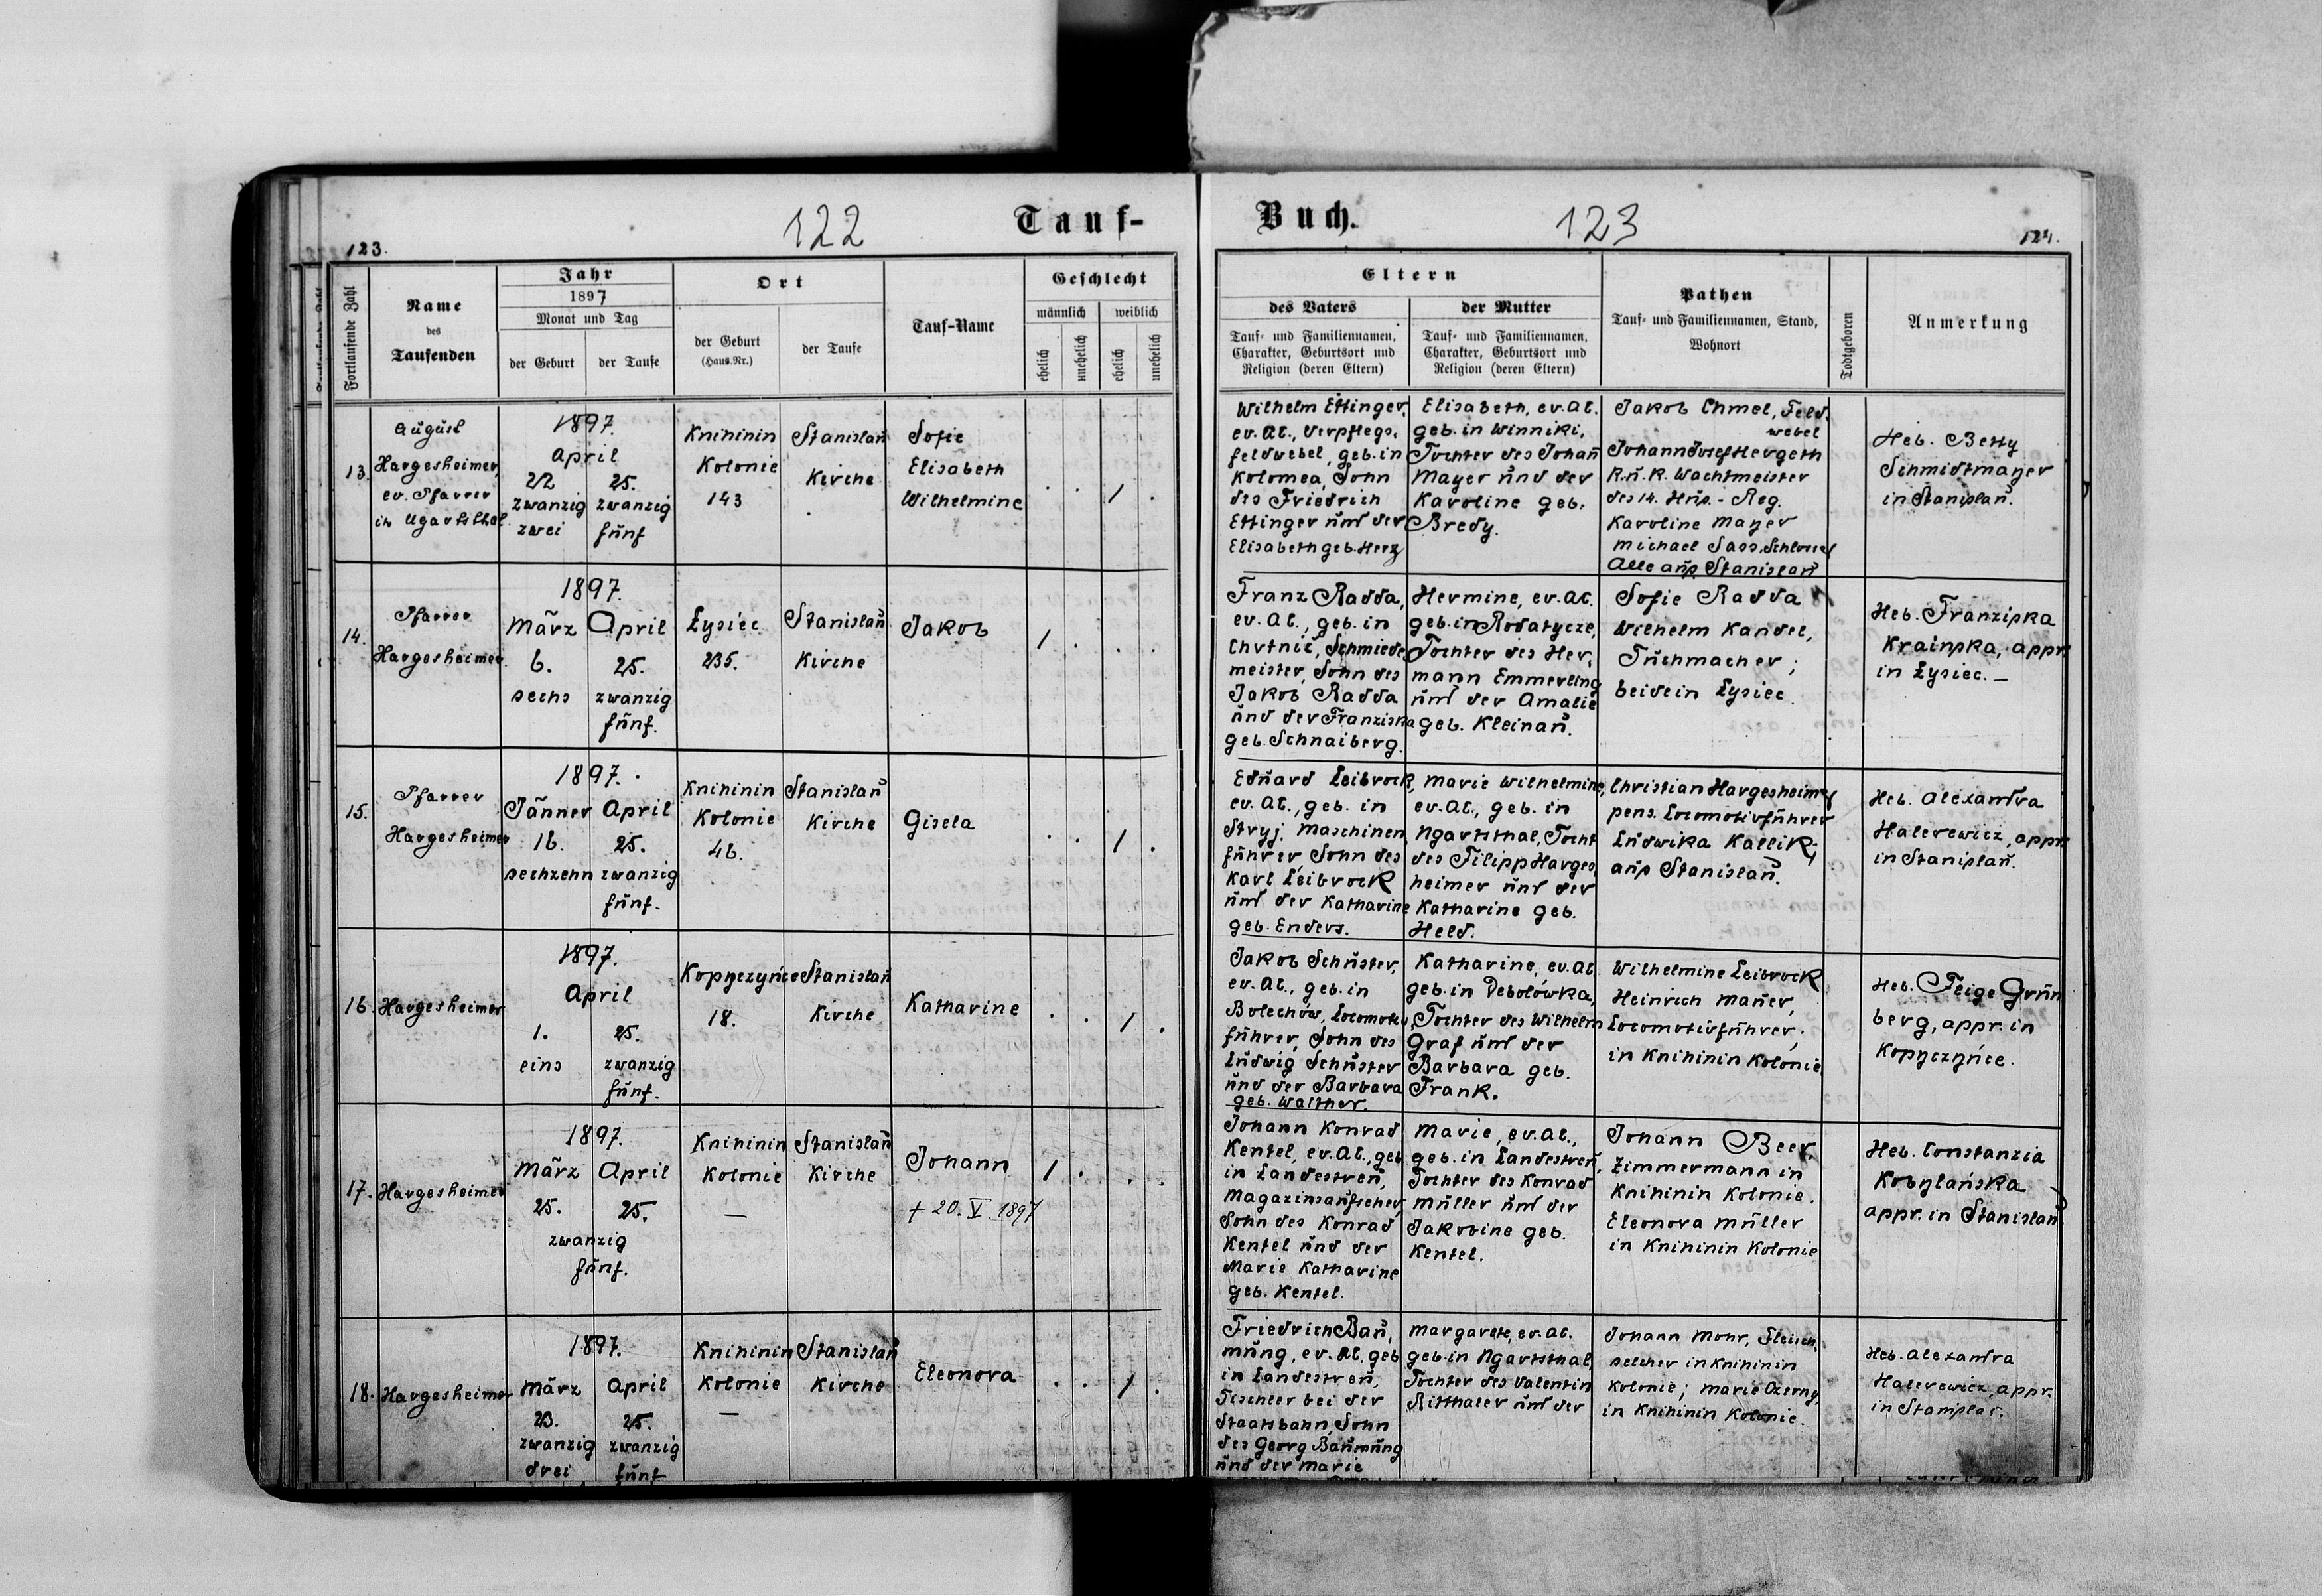 122
Tauf-
123.
Fortlaufende Zahl
Name
des
Taufenden
Jahr
1897
Monat und Tag
der Geburt
der Taufe
Ort
der Geburt
(Haus-Nr.)
der Taufe
Tauf-Name
Geschlecht
männlich
weiblich
ehelich
unehelich
ehelich
unehelich
13.
August
Hargesheimer,
ev. Pfarrer
in Ugartsthal
1897.
April
22
zwanzig
zwei
25.
zwanzig
fünf
Knihinin
Kolonie
143
Stanislau
Kirche
Sofie
Elisabeth
Wilhelmine
. . / .
14.
Pfarrer
Hargesheimer.
1897.
März
6.
sechs
April
25.
zwanzig
fünf.
Łysiec
235.
Stanislau
Kirche
Jakob
/ . . .
15.
Pfarrer
Hargesheimer
1897.
Jänner
16.
sechzehn
April
25.
zwanzig
fünf.
Knihinin
Kolonie
46.
Stanislau
Kirche
Gisela
. . / .
16.
Hargesheimer
1897.
April
1.
eins
25.
zwanzig
fünf.
Kopyczyńce
18.
Stanislau
Kirche
Katharine
. . / .
17.
Hargesheimer
1897.
März
25.
April
25.
zwanzig
fünf.
Knihinin
Kolonie
—
Stanislau
Kirche
Johann
+ 20. V. 1897
/ . . .
18.
Hargesheimer
1897.
März
23.
zwanzig
drei
April
25.
zwanzig
fünf
Knihinin
Kolonie
—
Stanislau
Kirche
Eleonora
. . / .
Buch.
123
124.
Eltern
des Vaters
Tauf- und Familiennamen,
Charakter, Geburtsort und
Religion (deren Eltern)
der Mutter
Tauf- und Familiennamen,
Charakter, Geburtsort und
Religion (deren Eltern)
Pathen
Tauf- und Familiennamen, Stand,
Wohnort
Todtgeboren
Anmerkung
Wilhelm Ettinger,
ev. AC., Verpflegs-
feldwebel, geb. in
Kolomea, Sohn
des Friedrich
Ettinger und der
Elisabeth geb. Herz
Elisabeth, ev. AC.
geb. in Winniki,
Tochter des Johan
Mayer und der
Karoline geb.
Bredy.
Jakob Chmel, Feld-
webel
Johann Josef Hergeth
K. u. K. Wachtmeister
des 14. Hus.-Reg.
Karoline Mayer
Michael Sass, Schlosser
Alle aus Stanislau
Heb. Betty
Schmidtmayer
in Stanislau.
Franz Radda,
ev. AC., geb. in
Schmiede-
meister, Sohn des
Jakob Radda
und der Franziska
geb. Schnaiberg.
Hermine, ev. AC.
geb. in Rodatycze,
Tochter des Her-
mann Emmerling
und der Amalie
geb. Kleinau.
Sofie Radda
Wilhelm Kandel,
Tuchmacher;
beide in Łysiec
Heb. Franziska
Krainska, appr.
in Łysiec. —
Eduard Leibrock,
ev. AC., geb. in
Stryj. Maschinen-
führer Sohn des
Karl Leibrock
und der Katharine
geb. Enders.
Marie Wilhelmine,
ev. AC., geb. in
Ugartsthal, Tocht
des Filipp Harges-
heimer und der
Katharine geb.
Held.
Christian Hargesheimer
pens. Locomotivführer
Ludwika Kallik;
aus Stanislau.
Heb. Alexandra
Halerewicz, appr.
in Stanislau.
Jakob Schuster,
ev. AC., geb. in
Bolechów, Locomotiv-
führer, Sohn des
Ludwig Schuster
und der Barbara
geb. Walther.
Katharine, ev. AC.
geb. in Debolówka,
Tochter des Wilhelm
Graf und der
Barbara geb.
Frank.
Wilhelmine Leibrock
Heinrich Mauer,
Locomotivführer;
in Knihinin Kolonie
Heb. Feige Grün
berg, appr. in
Kopyczyńce.
Johann Konrad
Kentel, ev. AC., geb
in Landestreu,
Magazinsaufseher,
Sohn des Konrad
Kentel und der
Marie Katharine
geb. Kentel.
Marie, ev. AC.,
geb. in Landestreu,
Tochter des Konrad
Müller und der
Jakobine geb.
Kentel.
Johann Beer,
Zimmermann in
Knihinin Kolonie.
Eleonora Müller
in Knihinin Kolonie
Heb. Constanzia
Kobylańska
appr. in Stanislau
Friedrich Bau-
mung, ev. AC. geb
in Landestreu,
Tischler bei der
Staatsbahn, Sohn
des Georg Baumung
und der Marie
Margarete, ev. AC.
geb. in Ugartsthal,
Tochter des Valentin
Ritthaler und der
Johann Mohr, Fleisch-
selcher in Knihinin
Kolonie; Marie Ozerny,
in Knihinin Kolonie.
Heb. Alexandra
Halerewicz, appr.
in Stanislau.